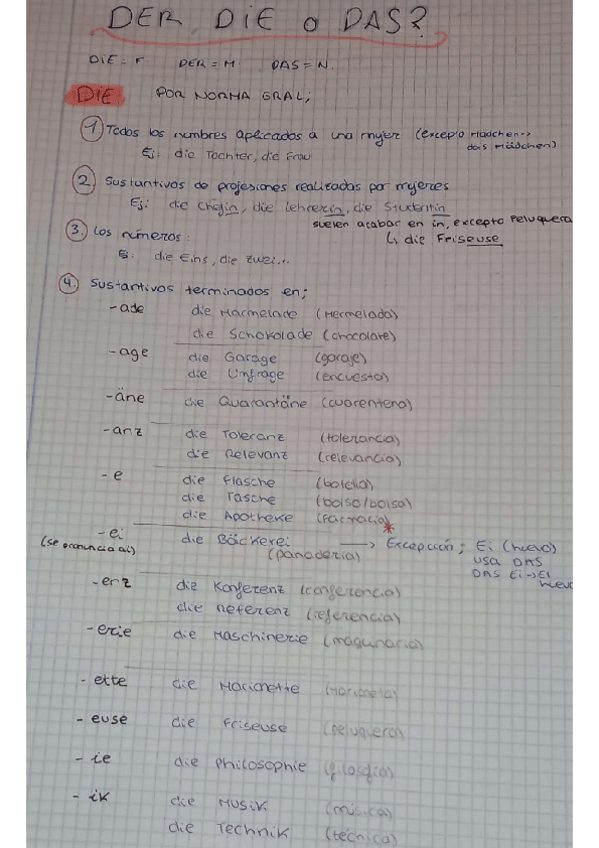 DER, DIE o DAS?
DIE = F DER = M DAS = N.
DIE POR NORMA GRAL;
1 Todos los nombres aplicados a una mujer (excepto Mädchen->
das Mädchen)
Ej: die Tochter, die Frau
2. Sustantivos de profesiones realizadas por mujeres
Ej: die Chefin, die Lehrerin, die Studentin
suelen acabar en in, excepto Peluquera
↳ die Friseuse
3. Los números:
Ej: die Eins, die Zwei...
4. Sustantivos terminados en;
-ade die Marmelade (Mermelada)
die Schokolade (chocolate)
-age die Garage (garaje)
die Umfrage (encuesta)
-äne die Quarantäne (cuarentena)
-anz die Toleranz (tolerancia)
die Relevanz (relevancia)
-e die Flasche (botella)
die Tasche (bolso/bolsa)
die Apotheke (farmacia)*
-ei die Bäckerei → Excepción; Ei (huevo)
(se pronuncia ai) (panadería) USA DAS
DAS Ei → El huevo
-enz die Konferenz (conferencia)
die Referenz (referencia)
-erie die Maschinerie (maquinaria)
-ette die Marionette (marioneta)
-euse die Friseuse (peluquera)
-ie die Philosophie (filosofía)
-ik die Musik (música)
die Technik (técnica)